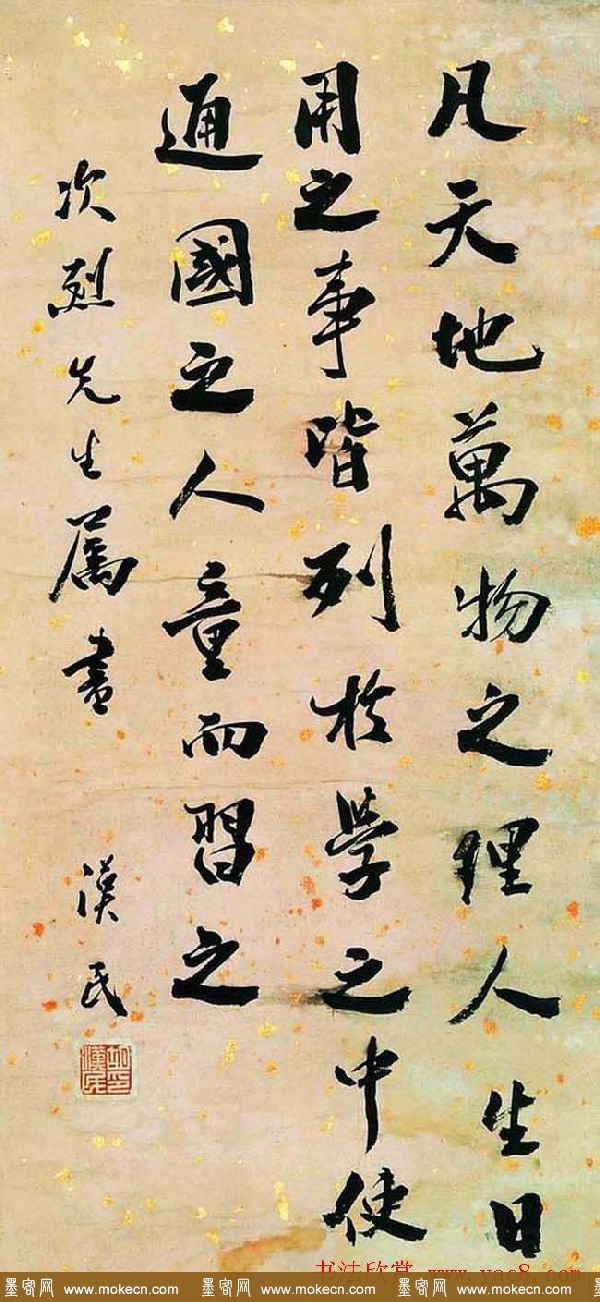 凡天地萬物之理人生日
用之事皆列於學之中使
通國之人童而習之
次烈先生屬書
漢民
書法欣赏 www.yac8.com
墨客网 www.mokecn.com 墨客网 www.mokecn.com 墨客网 www.mokecn.com